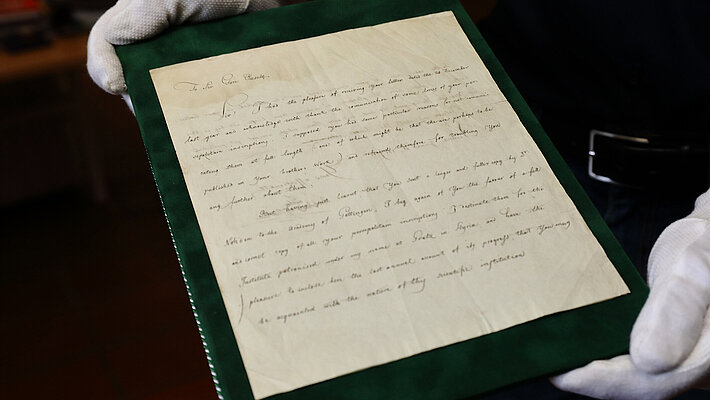 To Sir Gore Ousely.
Sir! I had the pleasure of receiving Your letter dated the 24 December
last year and acknowledge with thanks the communication of some lines of your per-
sepolitan inscriptions. I supposed you had some particular reasons for not communi-
cating them at full length (one of which might be that they are perhaps to be
published in Your brothers work) and refrained therefore for troubling You
any further about them.
But having just learnt that You sent a larger and fuller copy by Sr
to the Academy of Göttingen, I beg again of You the favour of a full
and correct copy of all your persepolitan inscriptions I destinate them for the
Institute patronized under my name at Gratz in Styria and have the
pleasure to inclose here the last annual account of its progress that You may
be acquainted with the nature of this scientific institution